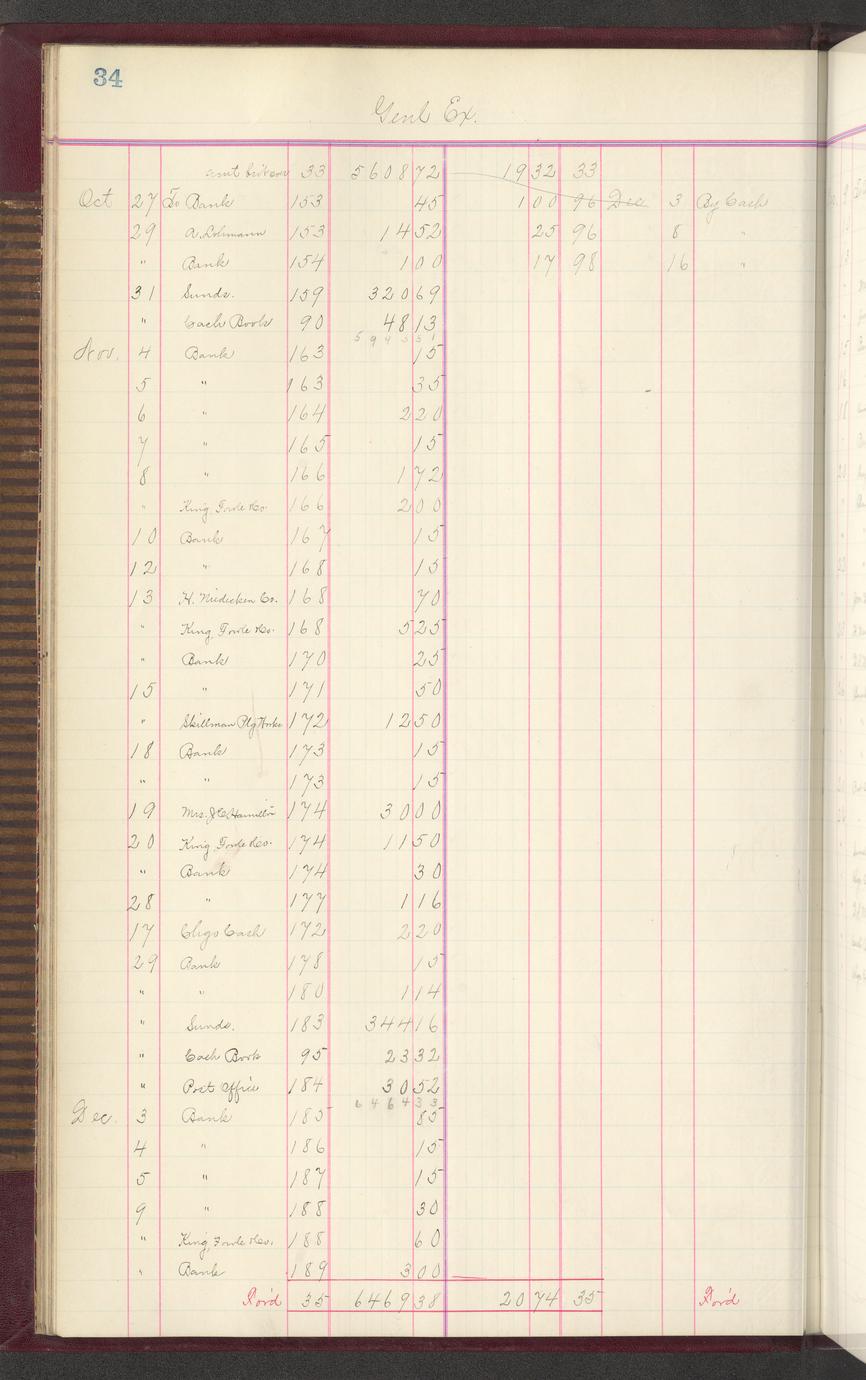 34
Genl Ex.
amt bro't over 33 5608 72 1932 33
Oct 27 To Bank 153 45 100 96 Dec 3 By Cash
29 A. Lohmann 153 14 52 25 96 8 "
" Bank 154 1 00 17 98 16 "
31 Sunds. 159 320 69
" Cash Book 90 48 13
5 9 9 3 5 1
Nov. 4 Bank 163 15
5 " 163 35
6 " 164 2 20
7 " 165 15
8 " 166 1 72
" King, Fowle & Co. 166 2 00
10 Bank 167 15
12 " 168 15
13 H. Niedecken Co. 168 70
" King, Fowle & Co. 168 5 25
" Bank 170 25
15 " 171 50
" Skillman Ptg Works 172 12 50
18 Bank 173 15
" " 173 15
19 Mrs. J. C. Hamilton 174 30 00
20 King, Fowle & Co. 174 11 50
" Bank 174 30
28 " 177 1 16
17 Chgo Cash 172 2 20
29 Bank 178 15
" " 180 1 14
" Sunds. 183 344 16
" Cash Book 95 23 32
" Post Office 184 30 52
6 4 6 4 3 3
Dec. 3 Bank 185 85
4 " 186 15
5 " 187 15
9 " 188 30
" King, Fowle & Co. 188 60
" Bank 189 3 00
For'd 35 6469 38 2074 35 For'd